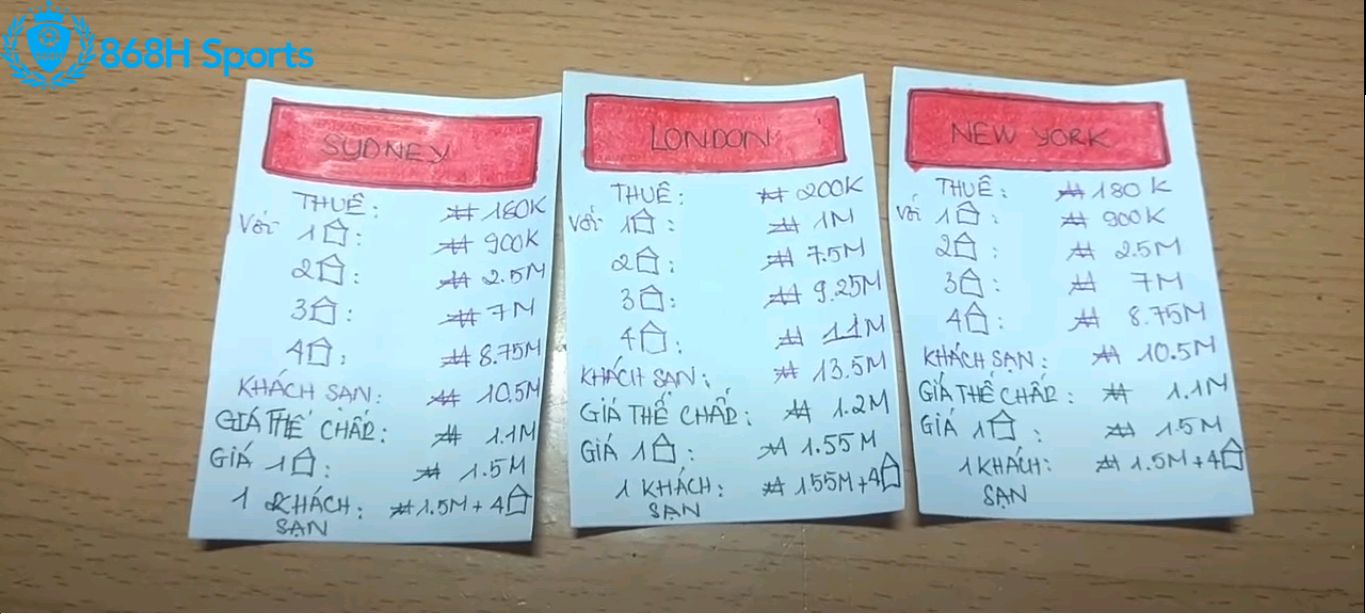 868H Sports
SYDNEY
THUÊ: ₩ 180K
Với 1⌂: ₩ 900K
2⌂: ₩ 2.5M
3⌂: ₩ 7M
4⌂: ₩ 8.75M
KHÁCH SẠN: ₩ 10.5M
GIÁ THẾ CHẤP: ₩ 1.1M
GIÁ 1⌂: ₩ 1.5M
1 KHÁCH: ₩ 1.5M + 4⌂
SẠN
LONDON
THUÊ: ₩ 200K
Với 1⌂: ₩ 1M
2⌂: ₩ 7.5M
3⌂: ₩ 9.25M
4⌂: ₩ 11M
KHÁCH SẠN: ₩ 13.5M
GIÁ THẾ CHẤP: ₩ 1.2M
GIÁ 1⌂: ₩ 1.55M
1 KHÁCH: ₩ 1.55M + 4⌂
SẠN
NEW YORK
THUÊ: ₩ 180K
Với 1⌂: ₩ 900K
2⌂: ₩ 2.5M
3⌂: ₩ 7M
4⌂: ₩ 8.75M
KHÁCH SẠN: ₩ 10.5M
GIÁ THẾ CHẤP: ₩ 1.1M
GIÁ 1⌂: ₩ 1.5M
1 KHÁCH: ₩ 1.5M + 4⌂
SẠN